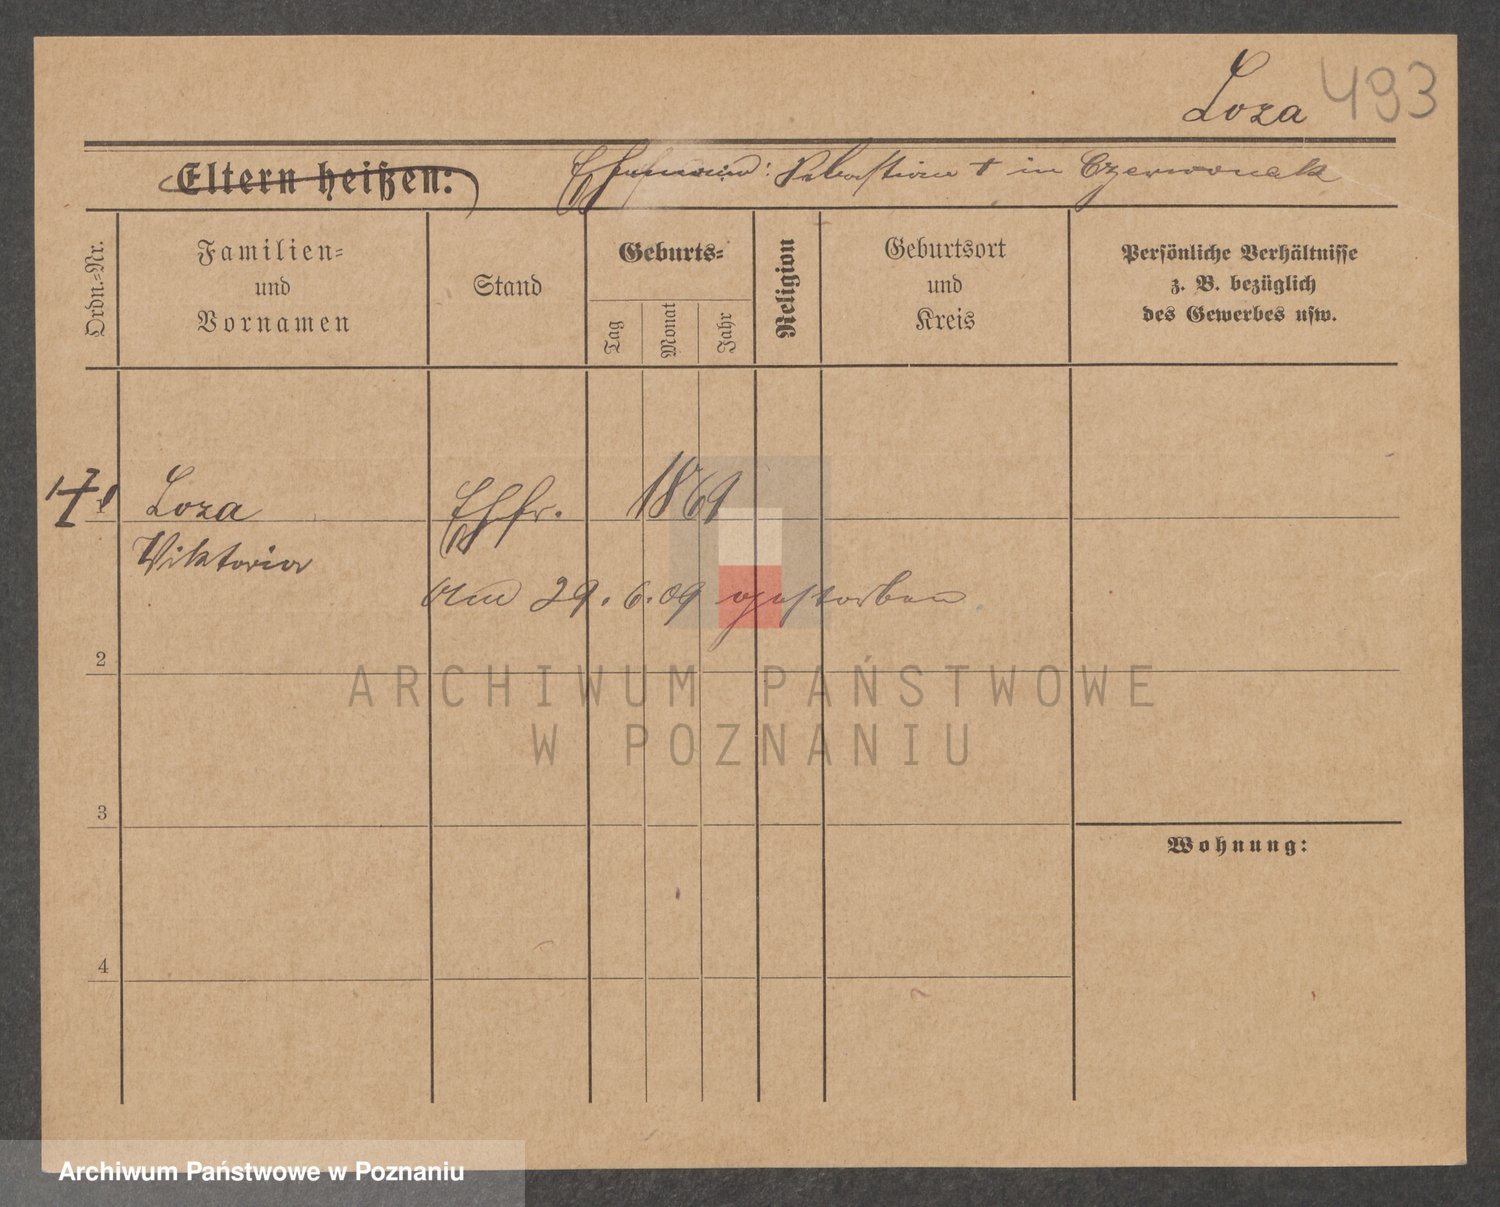 Loza 493
Eltern heißen: Ehemann: Sebastian † in Czerwonak
Ordn.-Nr.
Familien-
und
Vornamen
Stand
Geburts-
Tag
Monat
Jahr
Religion
Geburtsort
und
Kreis
Persönliche Verhältnisse
z. B. bezüglich
des Gewerbes usw.
1 Loza Ehfr. 1869
Viktoria
Am 29. 6. 09 gestorben
2
ARCHIWUM PAŃSTWOWE
W POZNANIU
3
Wohnung:
4
Archiwum Państwowe w Poznaniu